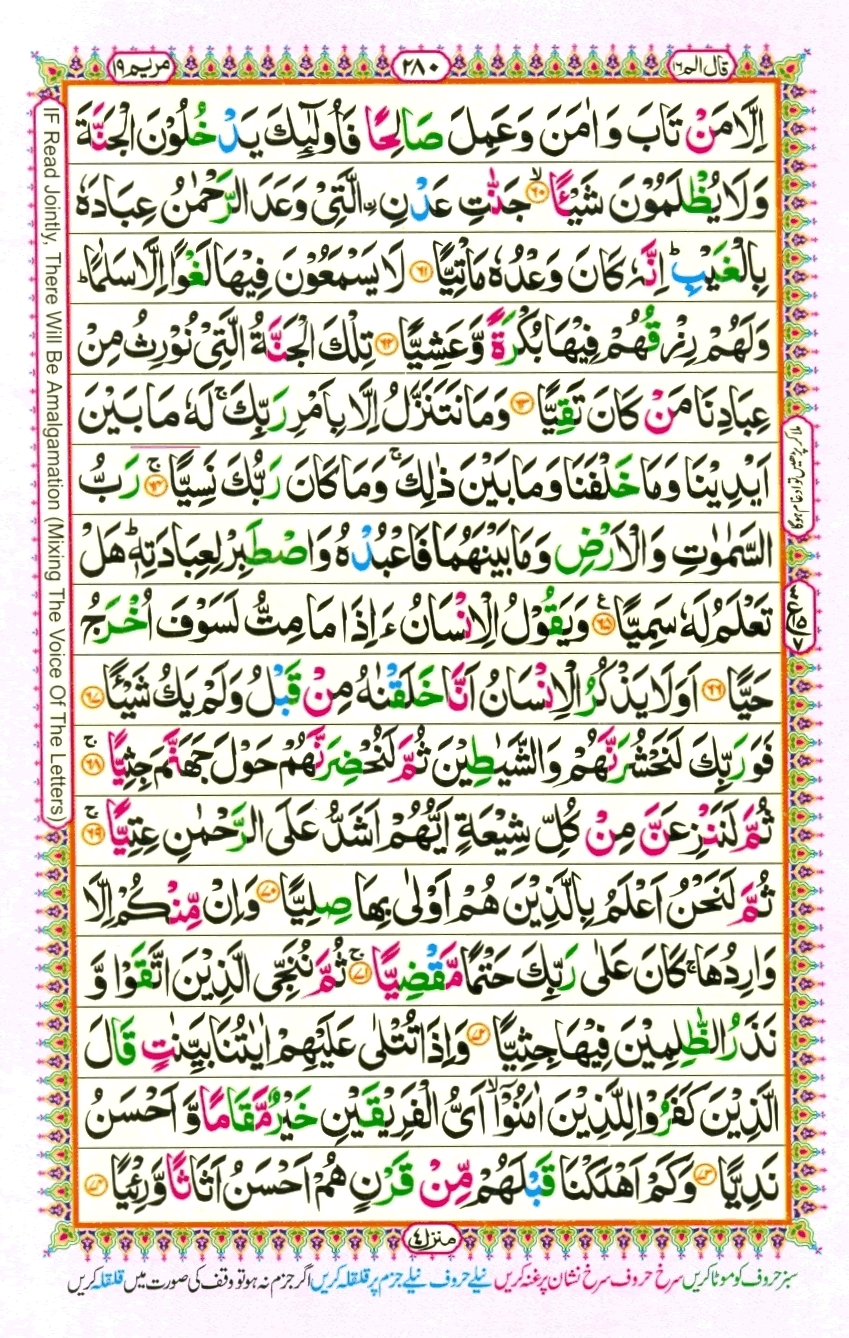 قال الم ۱۶
۲۸۰
مریم ۱۹
اِلَّا مَنْ تَابَ وَ اٰمَنَ وَ عَمِلَ صَالِحًا فَاُولٰٓئِكَ يَدْخُلُوْنَ الْجَنَّةَ
وَ لَا يُظْلَمُوْنَ شَيْـًٔا ۙ﴿۶۰﴾ جَنّٰتِ عَدْنِ ِۨالَّتِيْ وَعَدَ الرَّحْمٰنُ عِبَادَهٗ
بِالْغَيْبِ ؕ اِنَّهٗ كَانَ وَعْدُهٗ مَاْتِيًّا ﴿۶۱﴾ لَا يَسْمَعُوْنَ فِيْهَا لَغْوًا اِلَّا سَلٰمًا ؕ
وَ لَهُمْ رِزْقُهُمْ فِيْهَا بُكْرَةً وَّ عَشِيًّا ﴿۶۲﴾ تِلْكَ الْجَنَّةُ الَّتِيْ نُوْرِثُ مِنْ
عِبَادِنَا مَنْ كَانَ تَقِيًّا ﴿۶۳﴾ وَ مَا نَتَنَزَّلُ اِلَّا بِاَمْرِ رَبِّكَ ۚ لَهٗ مَا بَيْنَ
اَيْدِيْنَا وَ مَا خَلْفَنَا وَ مَا بَيْنَ ذٰلِكَ ۚ وَ مَا كَانَ رَبُّكَ نَسِيًّا ۚ﴿۶۴﴾ رَبُّ
السَّمٰوٰتِ وَ الْاَرْضِ وَ مَا بَيْنَهُمَا فَاعْبُدْهُ وَ اصْطَبِرْ لِعِبَادَتِهٖ ؕ هَلْ
تَعْلَمُ لَهٗ سَمِيًّا ﴿۶۵﴾ وَ يَقُوْلُ الْاِنْسَانُ ءَاِذَا مَا مِتُّ لَسَوْفَ اُخْرَجُ
حَيًّا ﴿۶۶﴾ اَوَ لَا يَذْكُرُ الْاِنْسَانُ اَنَّا خَلَقْنٰهُ مِنْ قَبْلُ وَ لَمْ يَكُ شَيْـًٔا ﴿۶۷﴾
فَوَ رَبِّكَ لَنَحْشُرَنَّهُمْ وَ الشَّيٰطِيْنَ ثُمَّ لَنُحْضِرَنَّهُمْ حَوْلَ جَهَنَّمَ جِثِيًّا ۚ﴿۶۸﴾
ثُمَّ لَنَنْزِعَنَّ مِنْ كُلِّ شِيْعَةٍ اَيُّهُمْ اَشَدُّ عَلَى الرَّحْمٰنِ عِتِيًّا ۚ﴿۶۹﴾
ثُمَّ لَنَحْنُ اَعْلَمُ بِالَّذِيْنَ هُمْ اَوْلٰى بِهَا صِلِيًّا ﴿۷۰﴾ وَ اِنْ مِّنْكُمْ اِلَّا
وَارِدُهَا ۚ كَانَ عَلٰى رَبِّكَ حَتْمًا مَّقْضِيًّا ۚ﴿۷۱﴾ ثُمَّ نُنَجِّي الَّذِيْنَ اتَّقَوْا وَّ
نَذَرُ الظّٰلِمِيْنَ فِيْهَا جِثِيًّا ﴿۷۲﴾ وَ اِذَا تُتْلٰى عَلَيْهِمْ اٰيٰتُنَا بَيِّنٰتٍ قَالَ
الَّذِيْنَ كَفَرُوْا لِلَّذِيْنَ اٰمَنُوْۤا ۙ اَيُّ الْفَرِيْقَيْنِ خَيْرٌ مَّقَامًا وَّ اَحْسَنُ
نَدِيًّا ﴿۷۳﴾ وَ كَمْ اَهْلَكْنَا قَبْلَهُمْ مِّنْ قَرْنٍ هُمْ اَحْسَنُ اَثَاثًا وَّ رِءْيًا ﴿۷۴﴾
IF Read Jointly, There Will Be Amalgamation (Mixing The Voice Of The Letters)
ملا کر پڑھیں تو ادغام ہوگا
منزل ۴
سبز حروف کو موٹا کریں سرخ حروف سرخ نشان پر غنہ کریں نیلے حروف نیلے جزم پر قلقلہ کریں اگر جزم نہ ہو تو وقف کی صورت میں قلقلہ کریں